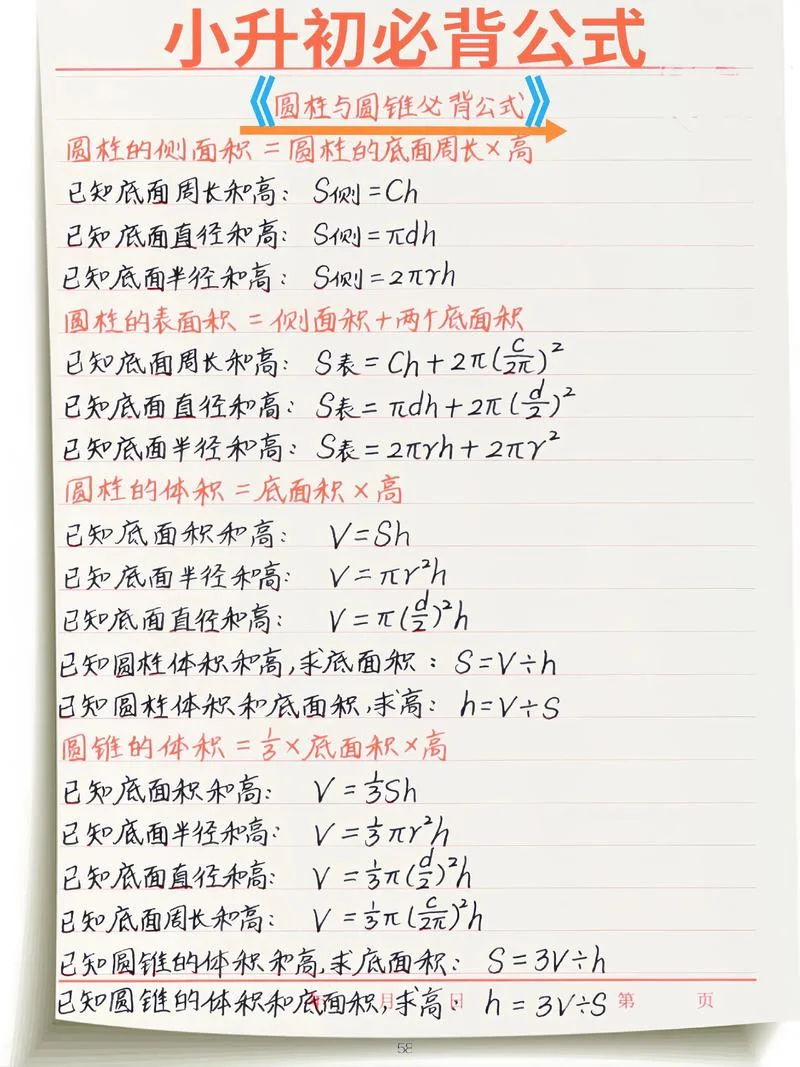 小升初必背公式
《圆柱与圆锥必背公式》
圆柱的侧面积=圆柱的底面周长×高
已知底面周长和高: S侧=Ch
已知底面直径和高: S侧=πdh
已知底面半径和高: S侧=2πrh
圆柱的表面积=侧面积+两个底面积
已知底面周长和高: S表=Ch+2π(C/2π)²
已知底面直径和高: S表=πdh+2π(d/2)²
已知底面半径和高: S表=2πrh+2πr²
圆柱的体积=底面积×高
已知底面积和高: V=Sh
已知底面半径和高: V=πr²h
已知底面直径和高: V=π(d/2)²h
已知圆柱体积和高,求底面积: S=V÷h
已知圆柱体积和底面积,求高: h=V÷S
圆锥的体积=1/3×底面积×高
已知底面积和高: V=1/3Sh
已知底面半径和高: V=1/3πr²h
已知底面直径和高: V=1/3π(d/2)²h
已知底面周长和高: V=1/3π(C/2π)²h
已知圆锥的体积和高,求底面积: S=3V÷h
已知圆锥的体积和底面积,求高: h=3V÷S
月 日 第 页
58